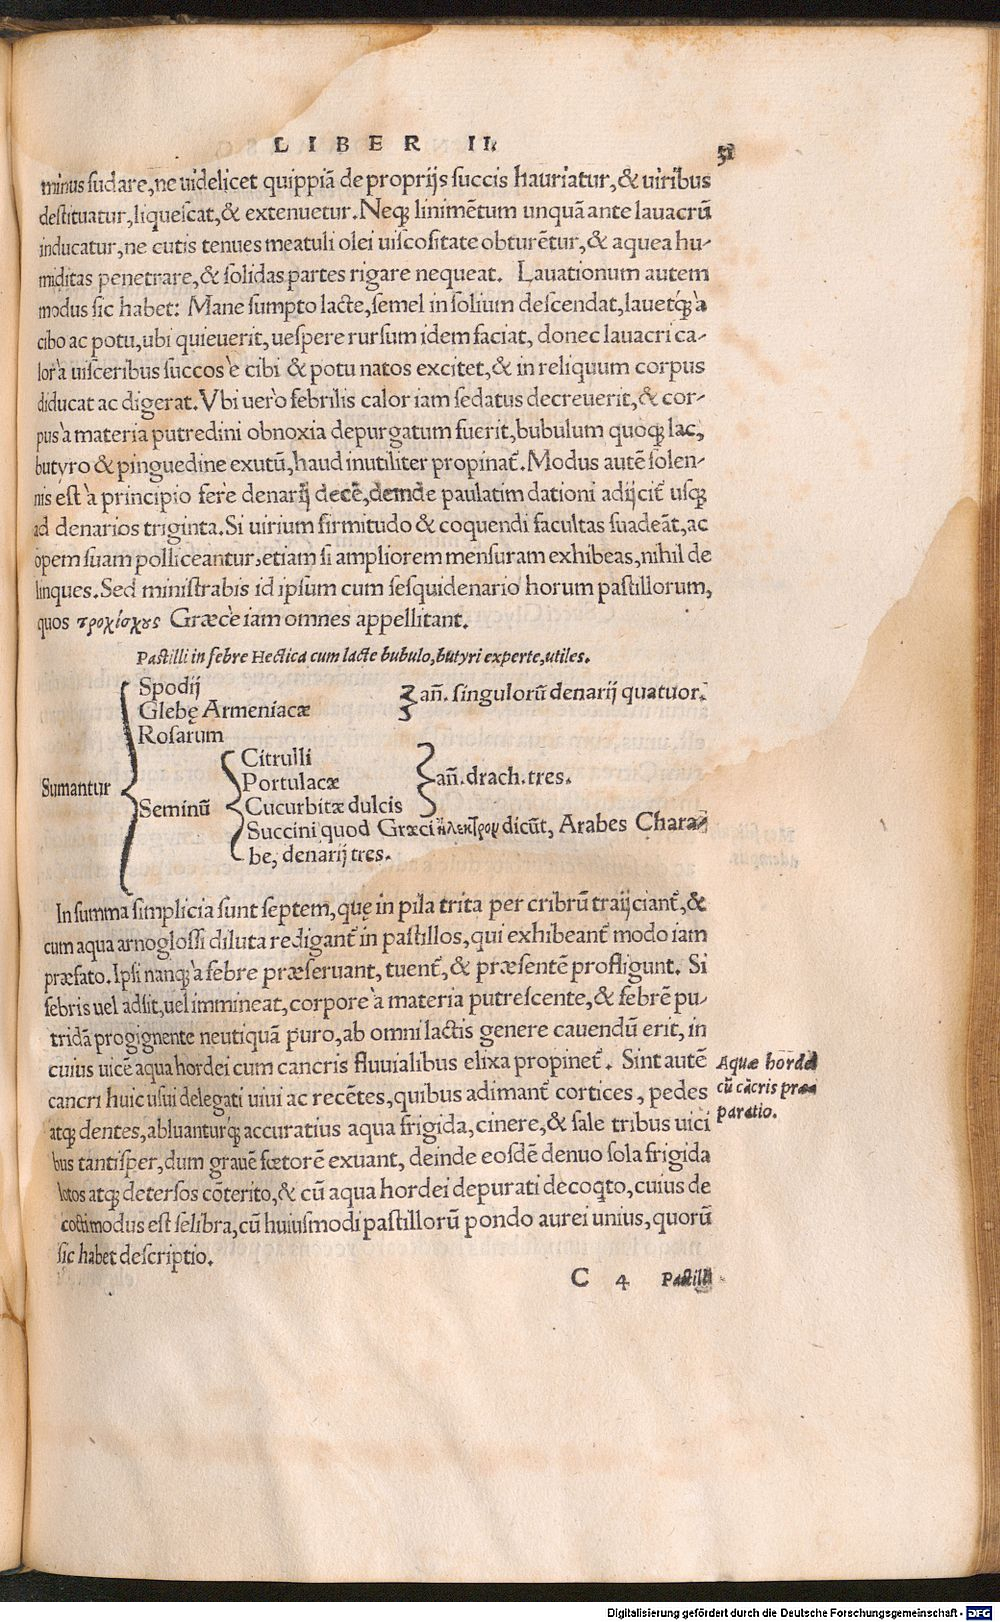 LIBER II.
31
minus sudare, ne uidelicet quippiã de proprijs succis hauriatur, & uiribus
destituatur, liquescat, & extenuetur. Neqꝫ linimẽtum unquã ante lauacrũ
inducatur, ne cutis tenues meatuli olei uiscositate obturẽtur, & aquea hu-
miditas penetrare, & solidas partes rigare nequeat. Lauationum autem
modus sic habet: Mane sumpto lacte, semel in solium descendat, lauetqꝫ à
cibo ac potu, ubi quieuerit, uespere rursum idem faciat, donec lauacri ca-
lor à uisceribus succos è cibi & potu natos excitet, & in reliquum corpus
diducat ac digerat. Vbi uerò febrilis calor iam sedatus decreuerit, & cor-
pus à materia putredini obnoxia depurgatum fuerit, bubulum quoqꝫ lac,
butyro & pinguedine exutũ, haud inutiliter propinat᷑. Modus autẽ solen-
nis est à principio ferè denarij decẽ, deinde paulatim dationi adijcit᷑ usqꝫ
ad denarios triginta. Si uirium firmitudo & coquendi facultas suadeãt, ac
opem suam polliceantur, etiam si ampliorem mensuram exhibeas, nihil de
linques. Sed ministrabis id ipsum cum sesquidenario horum pastillorum,
quos τροχίσχους Græcè iam omnes appellitant.
Pastilli in febre Hectica cum lacte bubulo, butyri experte, utiles.
Spodij
Glebę Armeniacæ
Rosarum
añ. singulorũ denarij quatuor.
Sumantur
Seminũ
Citrulli
Portulacæ
Cucurbitæ dulcis
añ. drach. tres.
Succini quod Græci ἤλεκτρον dicũt, Arabes Chara-
be, denarij tres.
In summa simplicia sunt septem, quę in pila trita per cribrũ traijciant᷑, &
cum aqua arnoglossi diluta redigant᷑ in pastillos, qui exhibeant᷑ modo iam
præfato. Ipsi nanqꝫ à febre præseruant, tuent᷑, & præsentẽ profligunt. Si
febris uel adsit, uel immineat, corpore à materia putrescente, & febrẽ pu-
tridã progignente neutiquã puro, ab omni lactis genere cauendũ erit, in
cuius uicẽ aqua hordei cum cancris fluuialibus elixa propinet᷑. Sint autẽ
cancri huic usui delegati uiui ac recẽtes, quibus adimant᷑ cortices, pedes
atqꝫ dentes, abluanturqꝫ accuratius aqua frigida, cinere, & sale tribus uici
bus tantisper, dum grauẽ fœtorẽ exuant, deinde eosdẽ denuo sola frigida
lotos atqꝫ detersos cõterito, & cũ aqua hordei depurati decoqto, cuius de
cocti modus est selibra, cũ huiusmodi pastillorũ pondo aurei unius, quorũ
sic habet descriptio.
Aquæ hordei
cũ cãcris præ-
paratio.
C 4
Pastilli
Digitalisierung gefördert durch die Deutsche Forschungsgemeinschaft - DFG